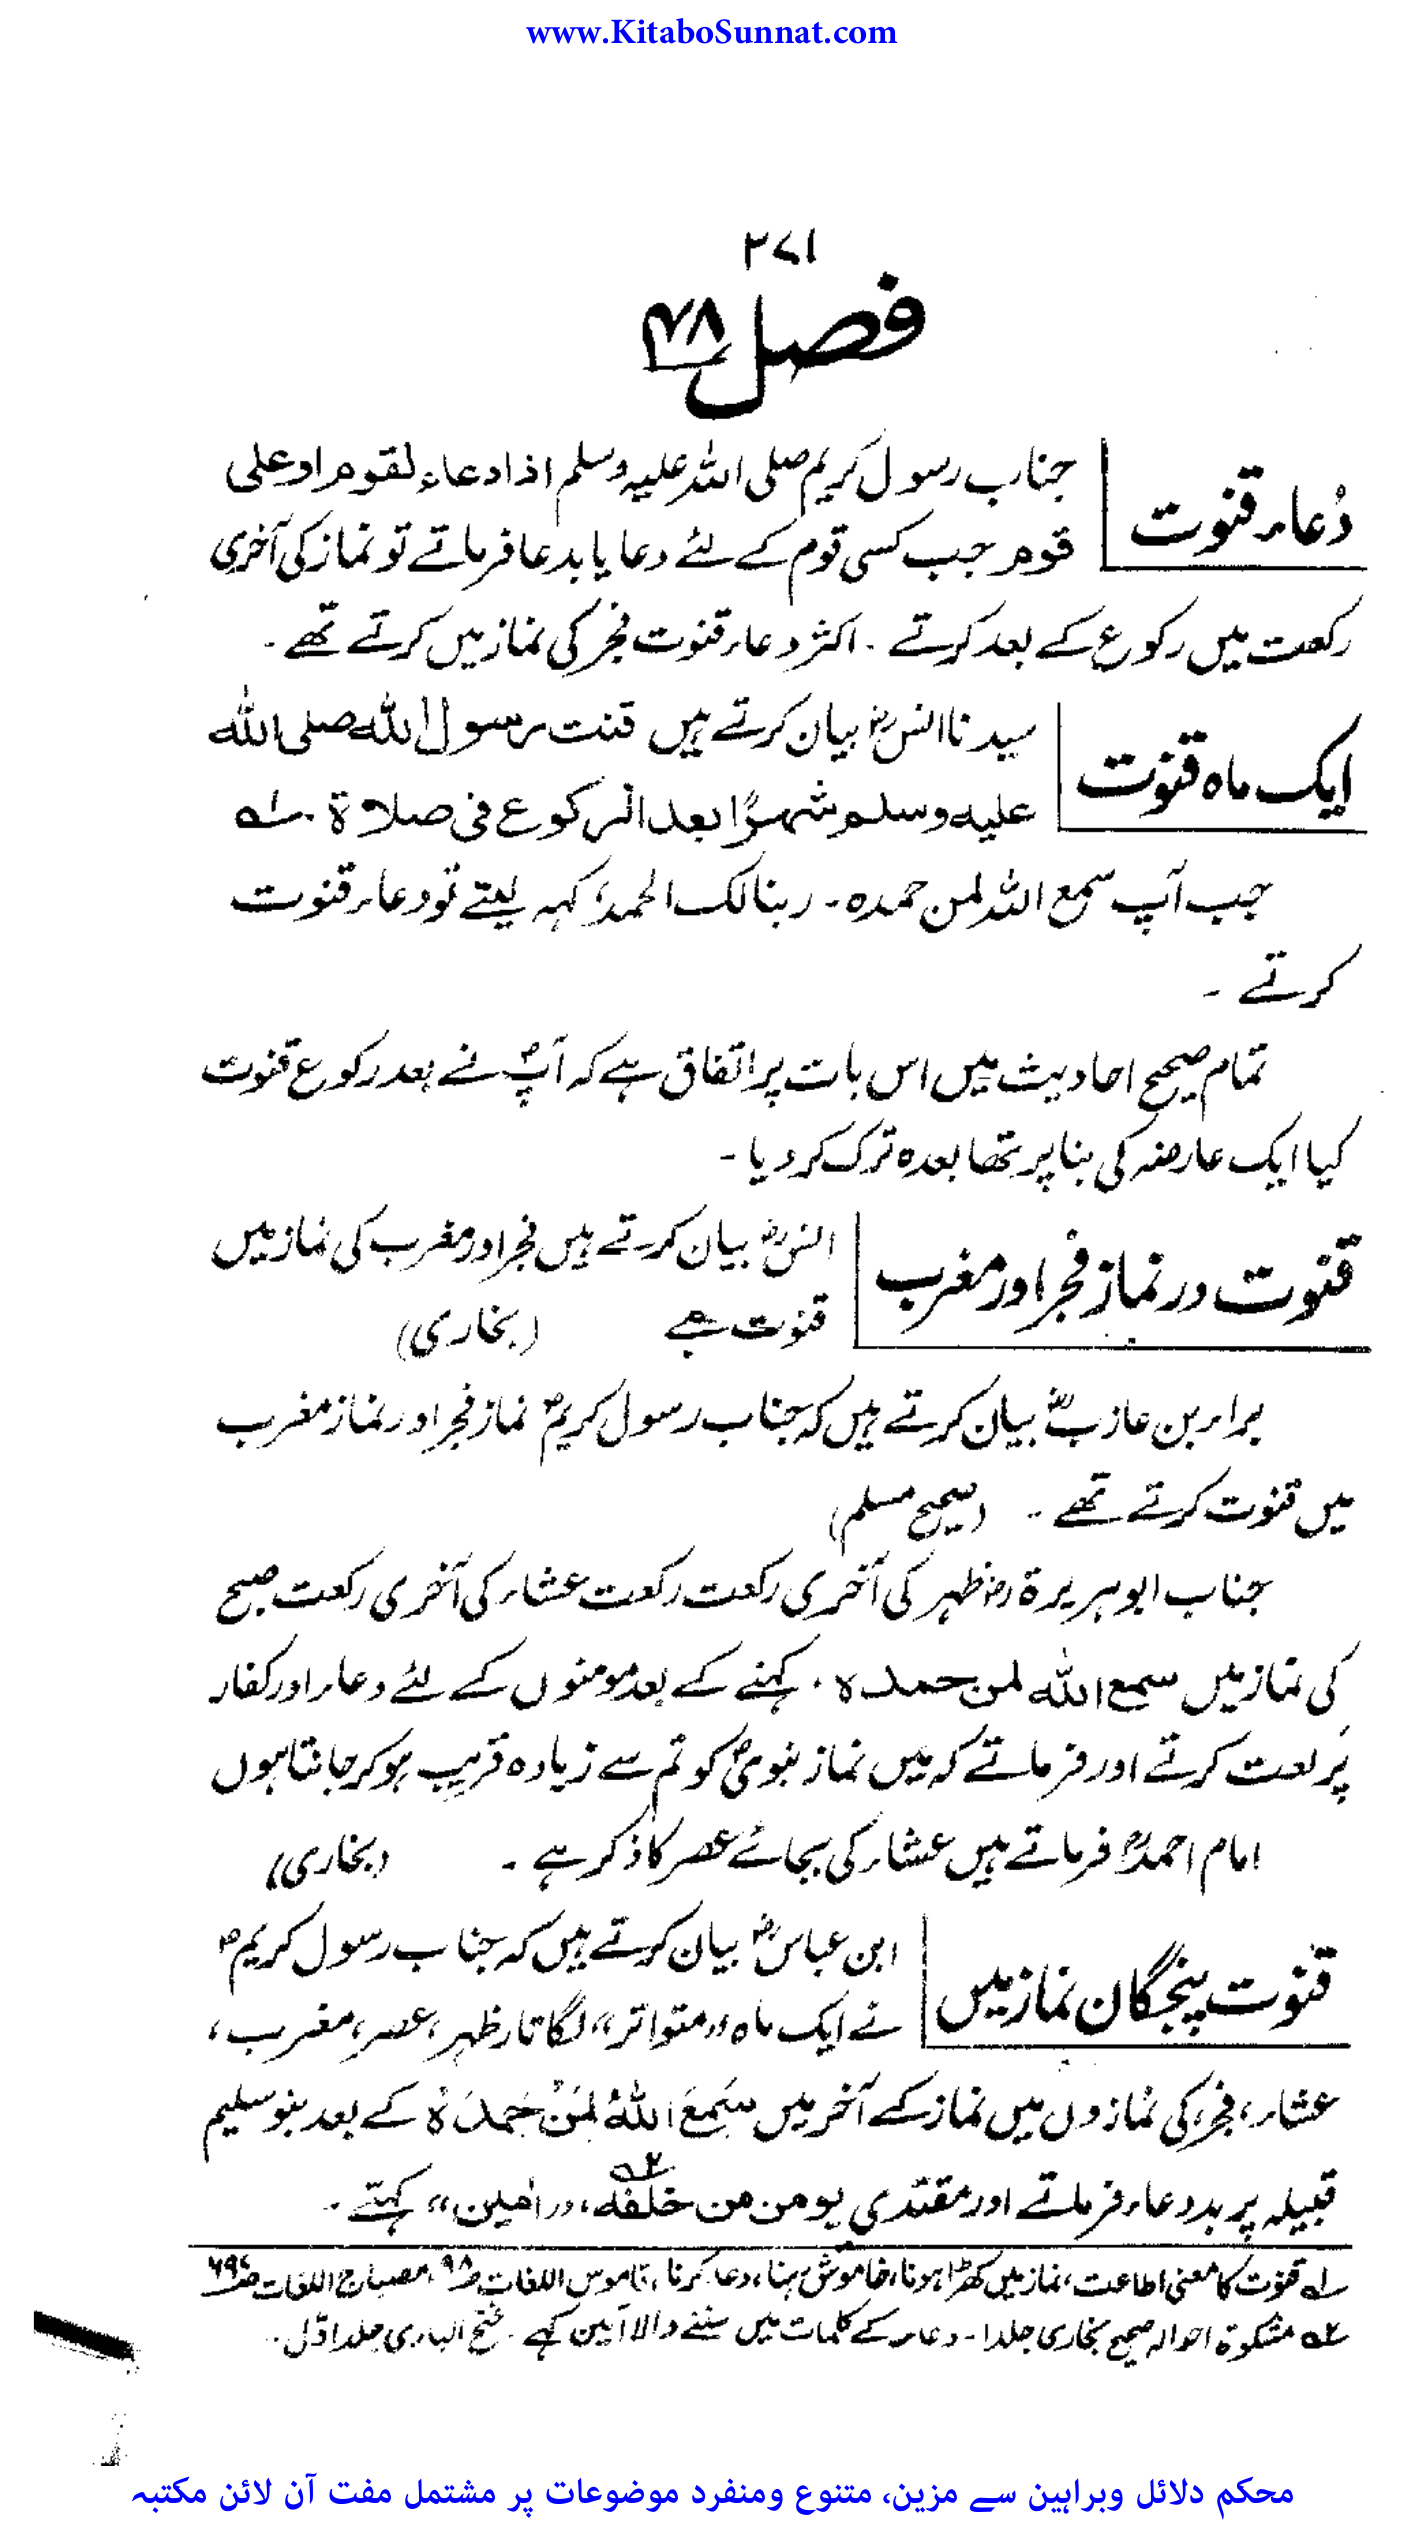 www.KitaboSunnat.com
۲۷۱
فصل ۴۸
دُعاء قنوت
جناب رسول کریم صلی اللہ علیہ وسلم اذا دعاء لقوم او علی
قوم جب کسی قوم کے لئے دعا یا بدعا فرماتے تو نماز کی آخری
رکعت میں رکوع کے بعد کرتے ۔ اکثر دعاء قنوت فجر کی نماز میں کرتے تھے ۔
ایک ماہ قنوت
سیدنا انسؓ بیان کرتے ہیں قنت رسول اللہ صلی اللہ
علیہ وسلم شہرًا بعد الرکوع فی صلاۃ ۔ ۱؎
جب آپ سمع اللہ لمن حمدہ ۔ ربنا لک الحمد، کہہ لیتے تو دعاء قنوت
کرتے ۔
تمام صحیح احادیث میں اس بات پر اتفاق ہے کہ آپؐ نے بعد رکوع قنوت
کیا ایک عارضہ کی بنا پر تھا بعدہ ترک کر دیا ۔
قنوت در نماز فجر اور مغرب
انسؓ بیان کرتے ہیں فجر اور مغرب کی نماز میں
قنوت ہے (بخاری)
براء بن عازبؓ بیان کرتے ہیں کہ جناب رسول کریمؐ نماز فجر اور نماز مغرب
میں قنوت کرتے تھے ۔ (صحیح مسلم)
جناب ابو ہریرۃ رضؓ ظہر کی آخری رکعت رکعت عشاء کی آخری رکعت صبح
کی نماز میں سمع اللہ لمن حمدہ ۔ کہنے کے بعد مومنوں کے لئے دعاء اور کفار
پر لعت کرتے اور فرماتے کہ میں نماز نبویؐ کو تم سے زیادہ قریب ہو کر جانتا ہوں
امام احمدؒ فرماتے ہیں عشاء کی بجائے عصر کا ذکر ہے ۔ (بخاری)
قنوت پنجگان نماز میں
ابن عباسؓ بیان کرتے ہیں کہ جناب رسول کریمؐ
نے ایک ماہ "متواتر" لگاتار ظہر، عصر، مغرب،
عشاء، فجر، کی نمازوں میں نماز کے آخر میں سَمِعَ اللہُ لِمَنْ حَمِدَہٗ کے بعد بنو سلیم
قبیلہ پر بددعاء فرماتے اور مقتدی یومن من خلفہ ۲؎، "اٰمین" کہتے ۔
۱؎ قنوت کا معنی اطاعت، نماز میں کھڑا ہونا، خاموش رہنا، دعا کرنا، قاموس اللغات ص۹۸، مصباح اللغات ص۶۹۷
۲؎ مشکوۃ احوالہ صحیح بخاری جلد ۱ ۔ دعاء کے کلمات میں سننے والا آمین کہے ۔ فتح الباری جلد اوّل ۔
محکم دلائل وبراہین سے مزین، متنوع ومنفرد موضوعات پر مشتمل مفت آن لائن مکتبہ